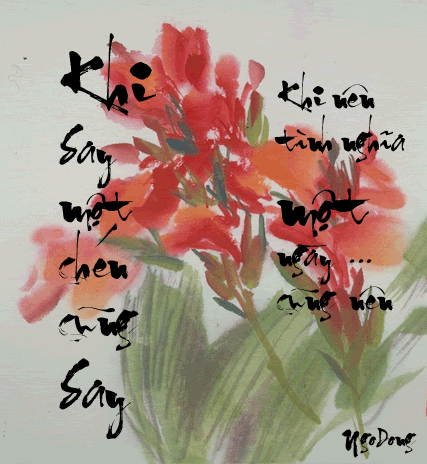 Khi
Say
một
chén
cũng
Say
Khi nên
tình nghĩa
một
ngày ...
cũng nên
NgoDong